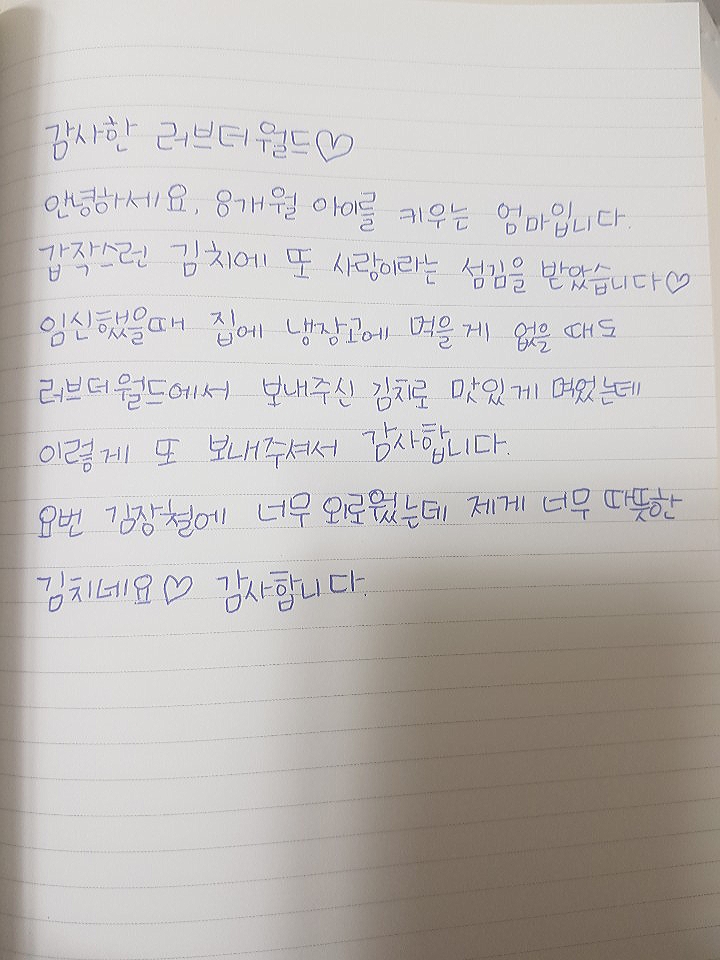 감사한 러브더월드♡
안녕하세요, 8개월 아이를 키우는 엄마입니다.
갑작스런 김치에 또 사랑이라는 섬김을 받았습니다♡
임신했을때 집에 냉장고에 먹을게 없을 때도
러브더월드에서 보내주신 김치로 맛있게 먹었는데
이렇게 또 보내주셔서 감사합니다.
요번 김장철에 너무 외로웠는데 제게 너무 따뜻한
김치네요♡ 감사합니다.